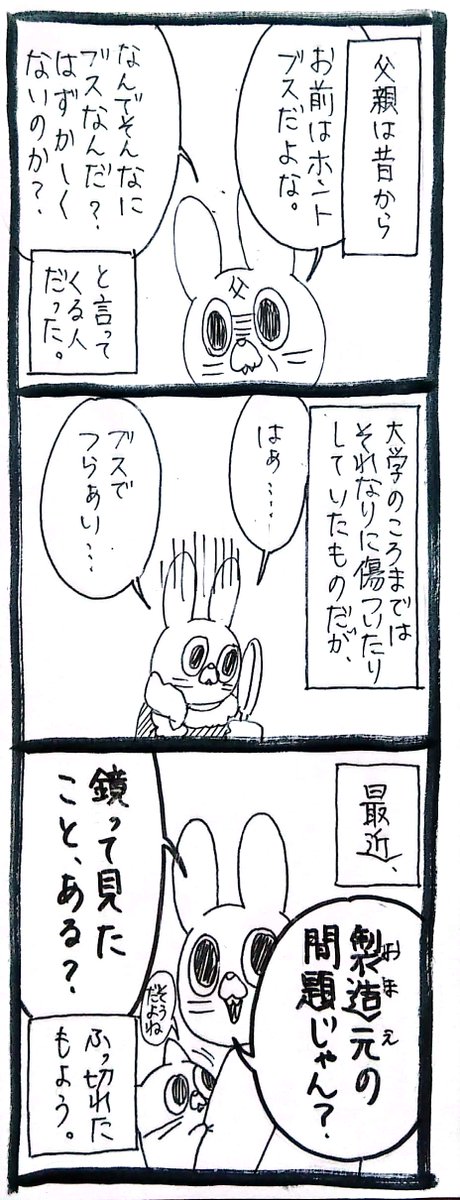 父親は昔から
お前はホント
ブスだよな。
なんでそんなに
ブスなんだ?
はずかしく
ないのか?
父
と言って
くる人
だった。
大学のころまでは
それなりに傷ついたり
していたものだが、
はぁ……
ブスで
つらぁい…
最近、
製造元の
おまえ
問題じゃん?
鏡って見た
こと、ある?
そう
だよね
ふっ切れた
もよう。